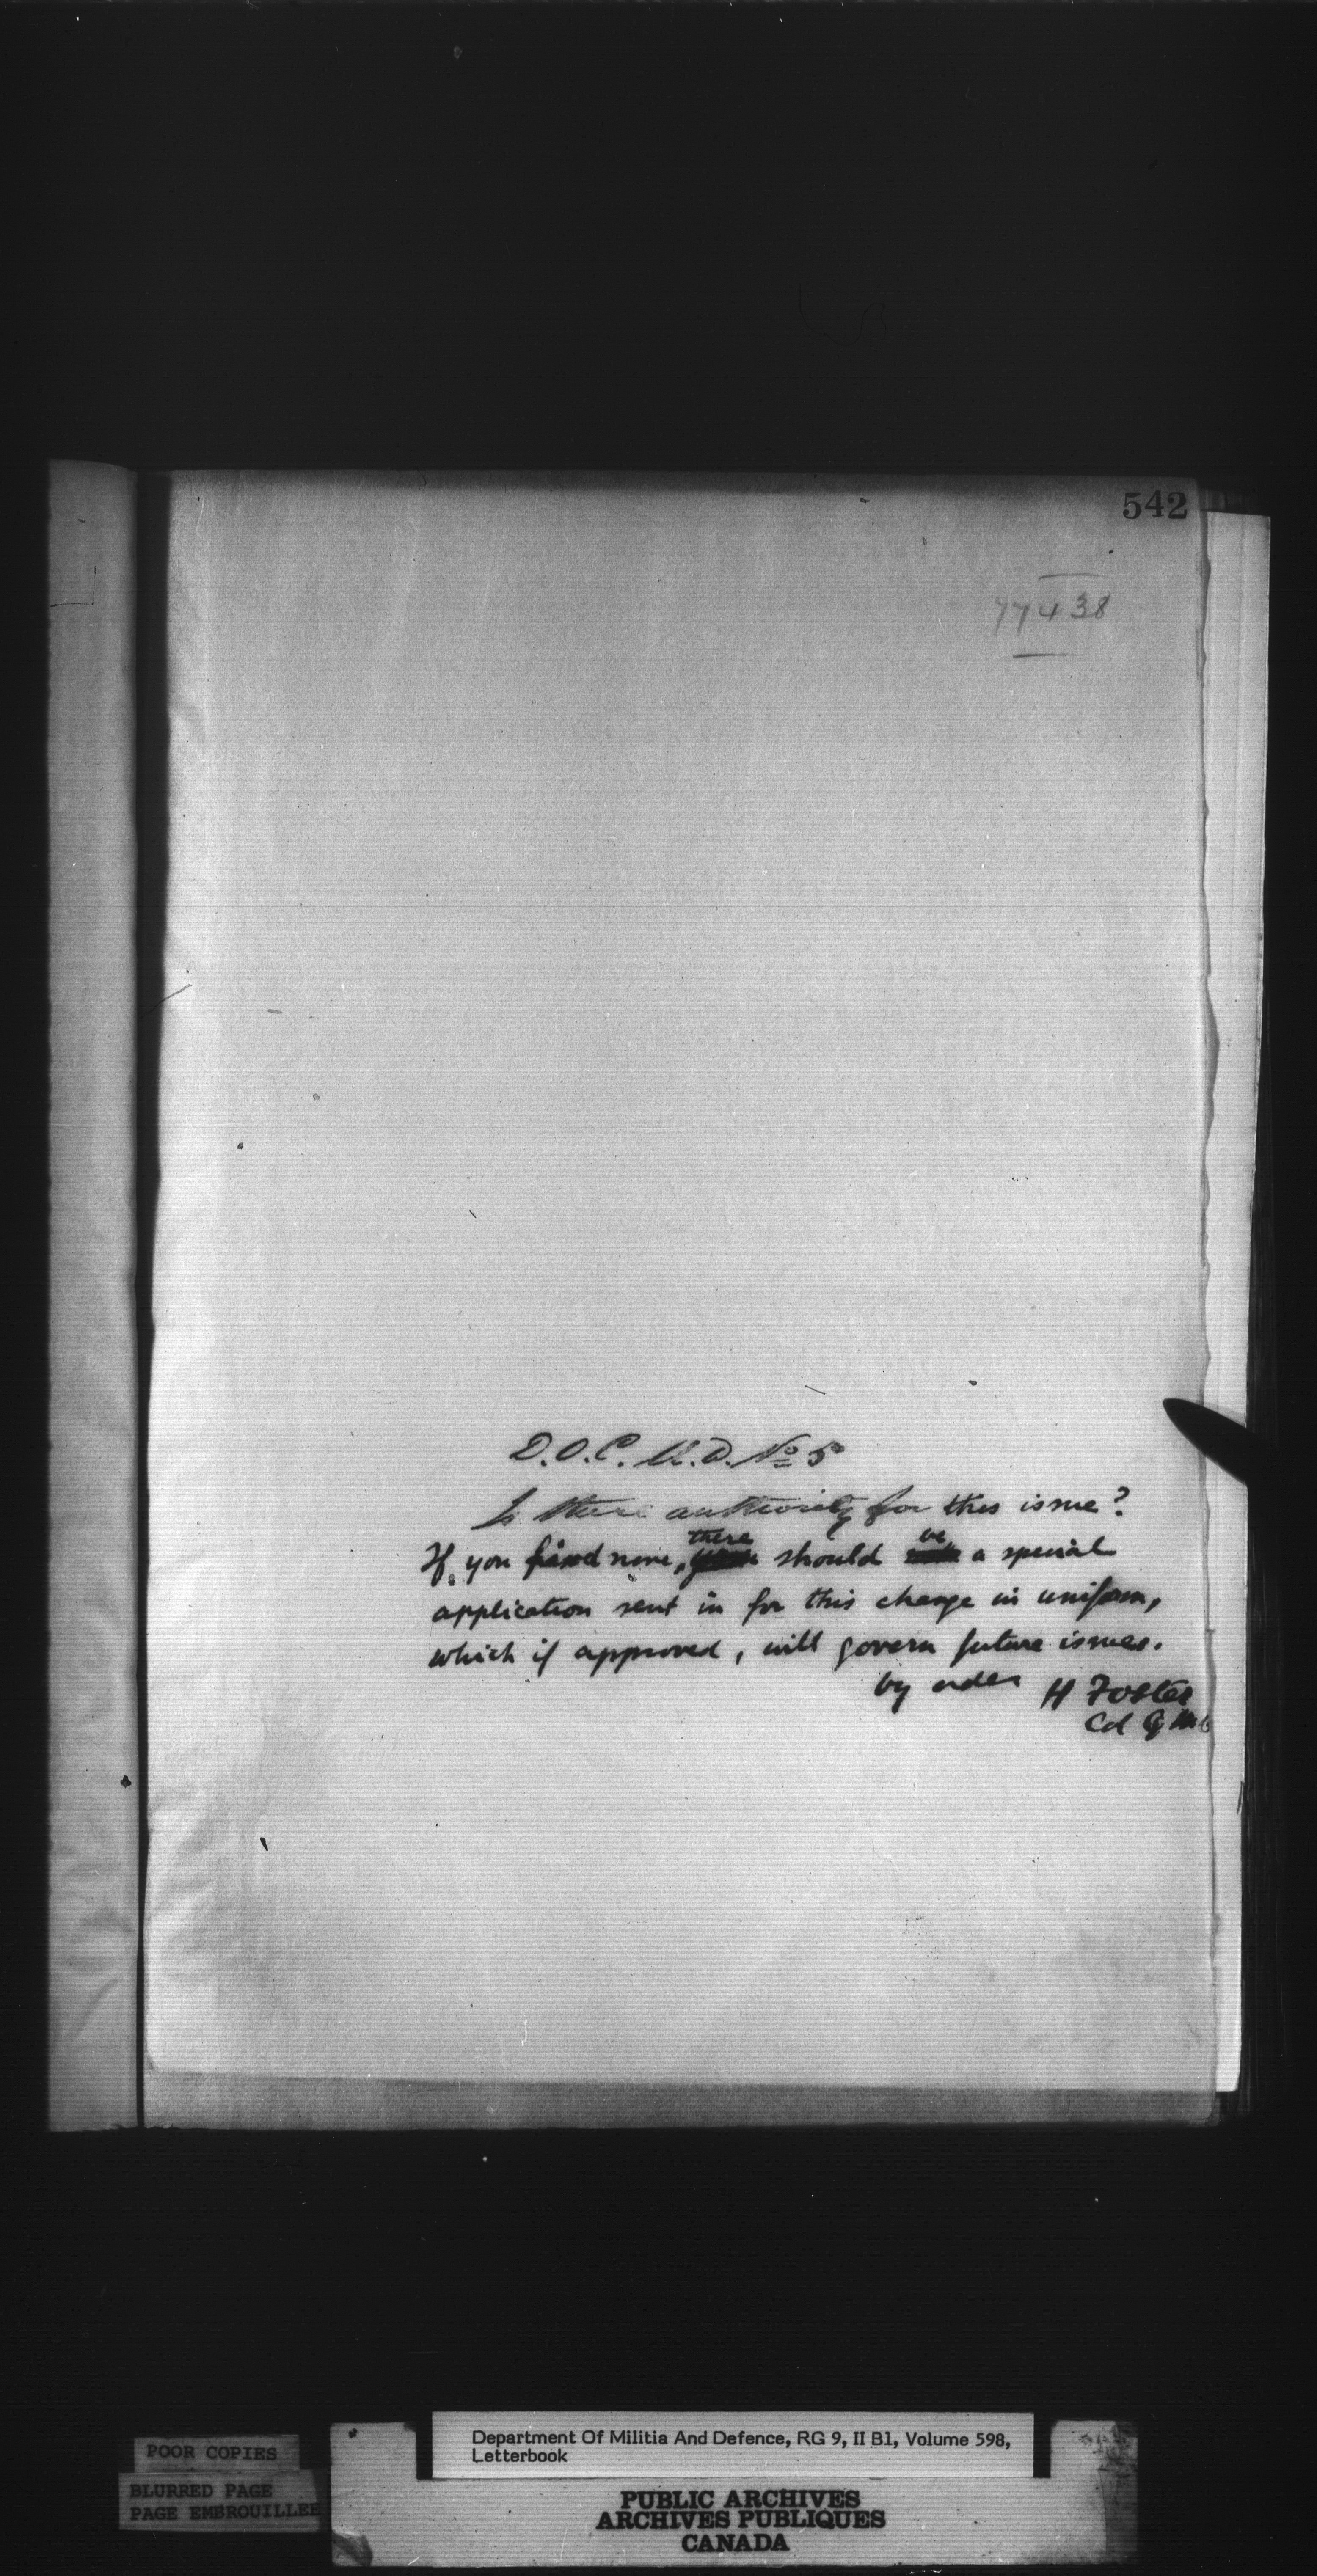 542
77438
D.O.C. M.D. No 5
Is there authority for this issue?
If you find none, there should be a special
application sent in for this change in uniform,
which if approved, will govern future issues.
by order H Foster
Col Q
POOR COPIES
BLURRED PAGE
PAGE EMBROUILLEE
Department Of Militia And Defence, RG 9, II B1, Volume 598,
Letterbook
PUBLIC ARCHIVES
ARCHIVES PUBLIQUES
CANADA